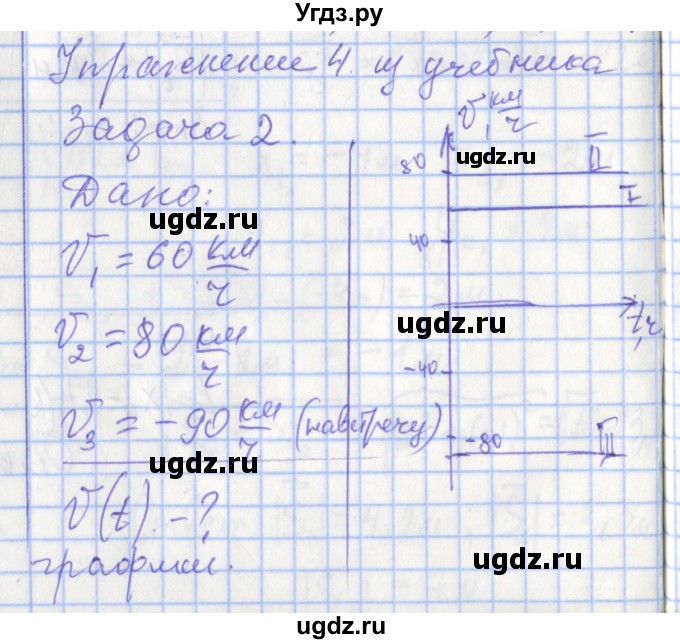 Угдз.ру
Упражнение 4. из учебника
Задача 2.
Дано:
V₁ = 60 км/ч
V₂ = 80 км/ч
V₃ = -90 км/ч (навстречу)
V(t) - ?
графики.
V, км/ч
80
II
I
40
t, ч
-40
-80
III
ugdz.ru
ugdz.ru
ugdz.ru
ugdz.ru
ugdz.ru
ugdz.ru
ugdz.ru
ugdz.ru
ugdz.ru